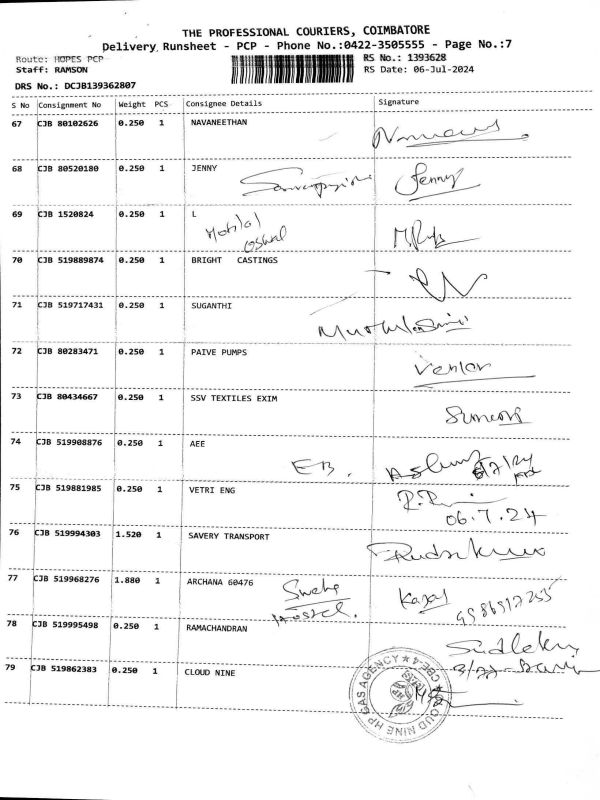 THE PROFESSIONAL COURIERS, COIMBATORE
Delivery Runsheet - PCP - Phone No.:0422-3505555 - Page No.:7
Route: HOPES PCP
RS No.: 1393628
Staff: RAMSON
RS Date: 06-Jul-2024
DRS No.: DCJB139362807
S No Consignment No Weight PCS Consignee Details Signature
67 CJB 80102626 0.250 1 NAVANEETHAN
68 CJB 80520180 0.250 1 JENNY
Jenny
69 CJB 1520824 0.250 1 L
Motilal
Oswal
70 CJB 519889874 0.250 1 BRIGHT CASTINGS
71 CJB 519717431 0.250 1 SUGANTHI
72 CJB 80283471 0.250 1 PAIVE PUMPS
73 CJB 80434667 0.250 1 SSV TEXTILES EXIM
74 CJB 519908876 0.250 1 AEE
EB.
6/7/24
75 CJB 519881985 0.250 1 VETRI ENG
06.7.24
76 CJB 519994303 1.520 1 SAVERY TRANSPORT
77 CJB 519968276 1.880 1 ARCHANA 60476
Hostel.
78 CJB 519995498 0.250 1 RAMACHANDRAN
79 CJB 519862383 0.250 1 CLOUD NINE
CLOUD NINE HP GAS AGENCY